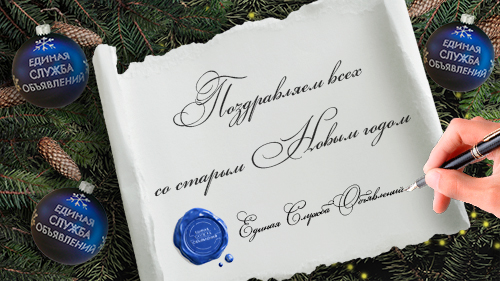 ЕДИНАЯ
СЛУЖБА
ОБЪЯВЛЕНИЙ
ЕДИНАЯ
СЛУЖБА
ОБЪЯВЛЕНИЙ
Поздравляем всех
со старым Новым годом
Единая Служба Объявлений
ЕДИНАЯ
СЛУЖБА
ОБЪЯВЛЕНИЙ